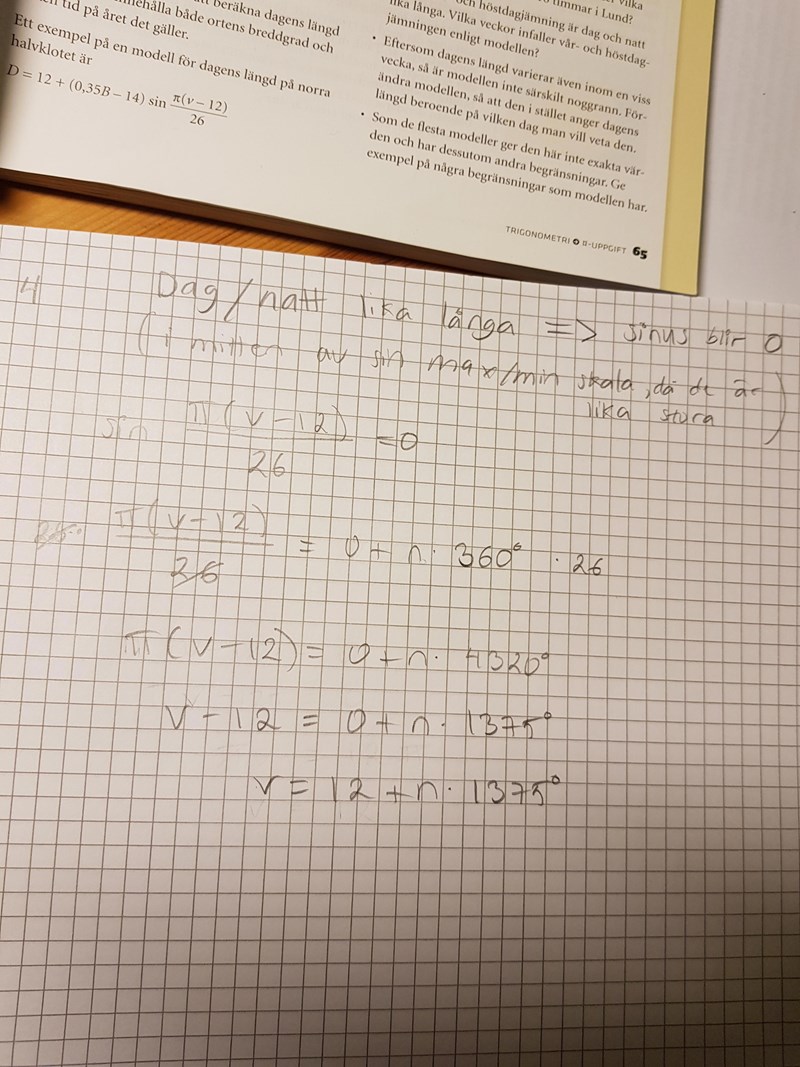 beräkna dagens längd
innehålla både ortens breddgrad och
tid på året det gäller.
Ett exempel på en modell för dagens längd på norra
halvklotet är
D = 12 + (0,35B − 14) sin π(v − 12)/26
timmar i Lund?
och höstdagjämning är dag och natt
lika långa. Vilka veckor infaller vår- och höstdag-
jämningen enligt modellen?
• Eftersom dagens längd varierar även inom en viss
vecka, så är modellen inte särskilt noggrann. För-
ändra modellen, så att den i stället anger dagens
längd beroende på vilken dag man vill veta den.
• Som de flesta modeller ger den här inte exakta vär-
den och har dessutom andra begränsningar. Ge
exempel på några begränsningar som modellen har.
TRIGONOMETRI α-UPPGIFT 65
4 Dag/natt lika långa => sinus blir 0
(i mitten av sin max/min skala, då de är
lika stora)
sin π(v−12)/26 = 0
π(v−12)/26 = 0 + n · 360° · 26
π(v−12) = 0 + n · 4320°
v − 12 = 0 + n · 1375°
v = 12 + n · 1375°